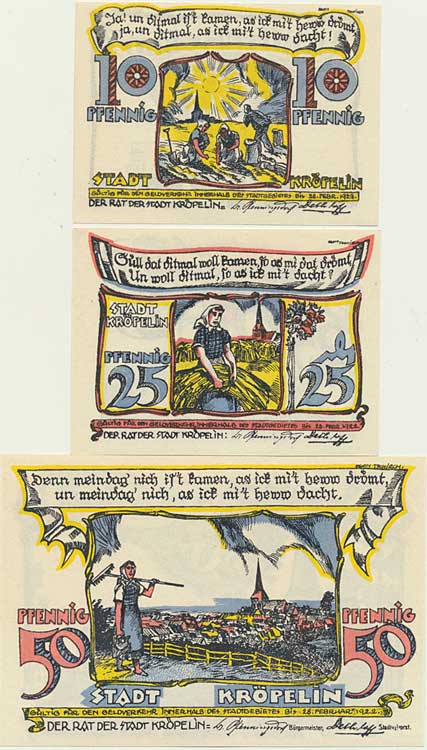 Ja! un ditmal is't kamen, as ick mi't heww drömt,
ja, un ditmal, as ick mi't heww dacht!
10 10
PFENNIG PFENNIG
STADT KRÖPELIN
GÜLTIG FÜR DEN GELDVERKEHR INNERHALB DES STADTGEBIETES BIS 28. FEBR. 1922.
DER RAT DER STADT KRÖPELIN=
Süll dat ditmal woll kamen, so as mi dat drömt,
Un woll ditmal, so as ick mi't dacht?
STADT
KRÖPELIN
PFENNIG
25 25
GÜLTIG FÜR DEN GELDVERKEHR INNERHALB DES STADTGEBIETES BIS 28. FEBR. 1922.
DER RAT DER STADT KRÖPELIN:
Denn meindag' nich is't kamen, as ick mi't heww drömt,
un meindag' nich, as ick mi't heww dacht.
PFENNIG PFENNIG
50 50
STADT KRÖPELIN
GÜLTIG FÜR DEN GELDVERKEHR INNERHALB DES STADTGEBIETES BIS 28. FEBRUAR 1922.
DER RAT DER STADT KRÖPELIN= Bürgermeister,